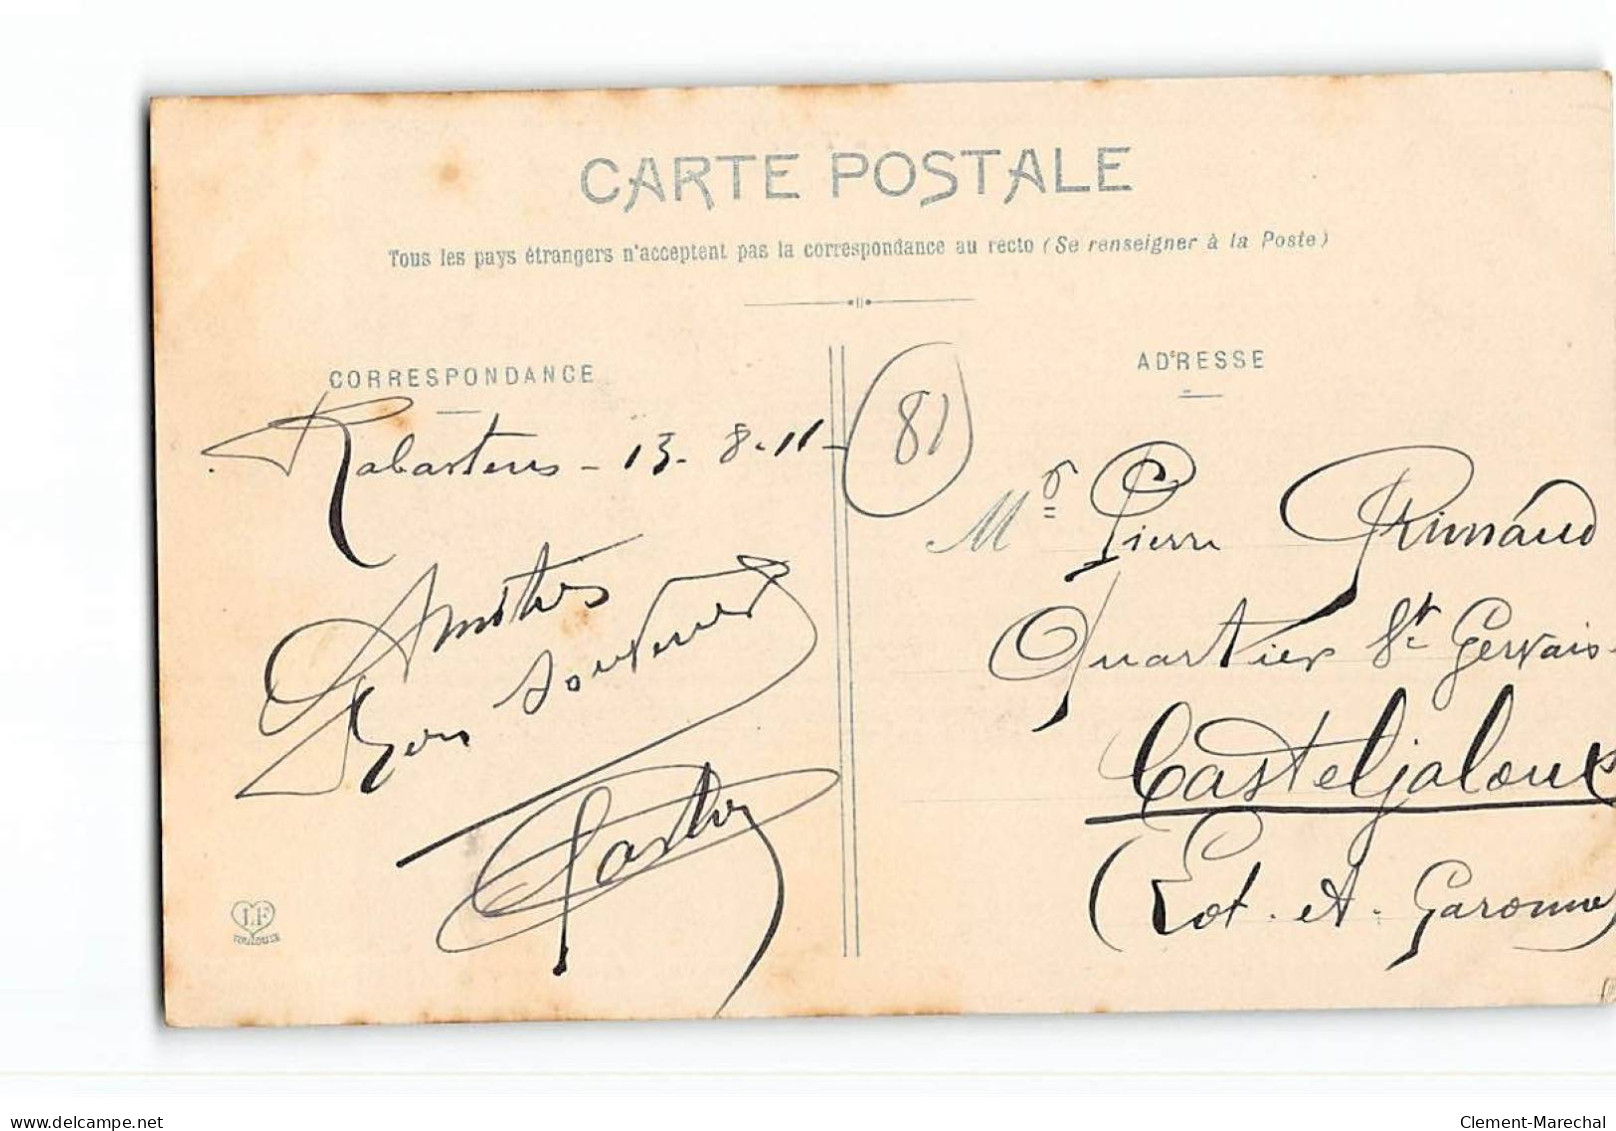 CARTE POSTALE
Tous les pays étrangers n'acceptent pas la correspondance au recto (Se renseigner à la Poste)
CORRESPONDANCE
ADRESSE
Rabastens - 13. 8. 11 -
81
Amitiés
Bon souvenir
Mr Pierre Rimaud
Quartier St Gervais.
Casteljaloux
(Lot. et. Garonne)
LF
TOULOUSE
delcampe.net
Clement-Marechal